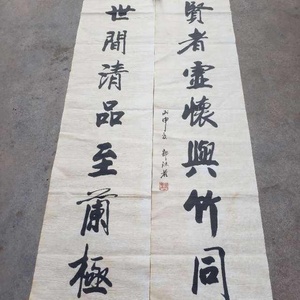 賢者虛懷與竹同
世間清品至蘭極